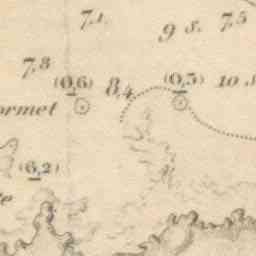 7,1 9 s. 7,5
7,8
(0,6) 8,4 (0,5) 10 s.
ormet
(6,2)
te